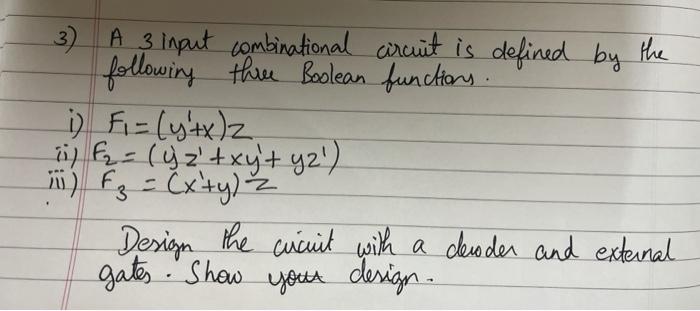 3) A 3 input combinational circuit is defined by the
following three Boolean functions.
i) F₁ = (y'+x)z
ii) F₂ = (y'z' + xy' + yz')
iii) F₃ = (x'+y)z
Design the circuit with a decoder and external
gates. Show your design.